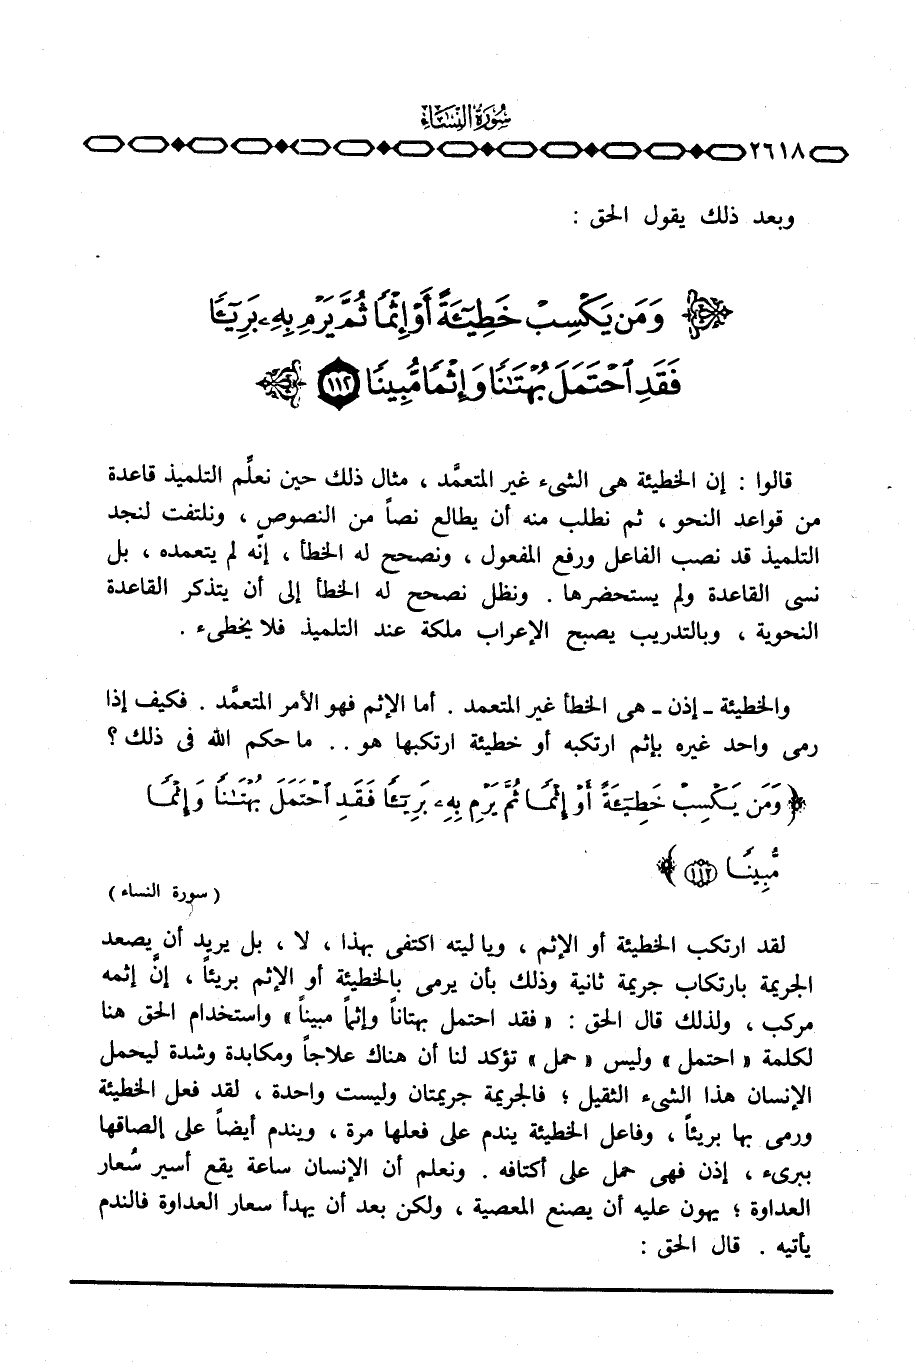 سُورَةُ النِّسَاءِ
٢٦١٨
وبعد ذلك يقول الحق :
وَمَن يَكْسِبْ خَطِيٓـَٔةً أَوْ إِثْمًا ثُمَّ يَرْمِ بِهِۦ بَرِيٓـًٔا
فَقَدِ ٱحْتَمَلَ بُهْتَٰنًا وَإِثْمًا مُّبِينًا ١١٢
قالوا : إن الخطيئة هى الشىء غير المتعمَّد ، مثال ذلك حين نعلِّم التلميذ قاعدة
من قواعد النحو ، ثم نطلب منه أن يطالع نصاً من النصوص ، ونلتفت لنجد
التلميذ قد نصب الفاعل ورفع المفعول ، ونصحح له الخطأ ، إنَّه لم يتعمده ، بل
نسى القاعدة ولم يستحضرها . ونظل نصحح له الخطأ إلى أن يتذكر القاعدة
النحوية ، وبالتدريب يصبح الإعراب ملكة عند التلميذ فلا يخطىء .
والخطيئة ـ إذن ـ هى الخطأ غير المتعمد . أما الإثم فهو الأمر المتعمَّد . فكيف إذا
رمى واحد غيره بإثم ارتكبه أو خطيئة ارتكبها هو .. ما حكم الله فى ذلك ؟
﴿ وَمَن يَكْسِبْ خَطِيٓـَٔةً أَوْ إِثْمًا ثُمَّ يَرْمِ بِهِۦ بَرِيٓـًٔا فَقَدِ ٱحْتَمَلَ بُهْتَٰنًا وَإِثْمًا
مُّبِينًا ١١٢ ﴾
( سورة النساء )
لقد ارتكب الخطيئة أو الإثم ، ويا ليته اكتفى بهذا ، لا ، بل يريد أن يصعد
الجريمة بارتكاب جريمة ثانية وذلك بأن يرمى بالخطيئة أو الإثم بريئاً ، إنَّ إثمه
مركب ، ولذلك قال الحق : « فقد احتمل بهتاناً وإثماً مبيناً » واستخدام الحق هنا
لكلمة « احتمل » وليس « حمل » تؤكد لنا أن هناك علاجاً ومكابدة وشدة ليحمل
الإنسان هذا الشىء الثقيل ؛ فالجريمة جريمتان وليست واحدة ، لقد فعل الخطيئة
ورمى بها بريئاً ، وفاعل الخطيئة يندم على فعلها مرة ، ويندم أيضاً على إلصاقها
ببرىء ، إذن فهى حمل على أكتافه . ونعلم أن الإنسان ساعة يقع أسير سُعار
العداوة ؛ يهون عليه أن يصنع المعصية ، ولكن بعد أن يهدأ سعار العداوة فالندم
يأتيه . قال الحق :